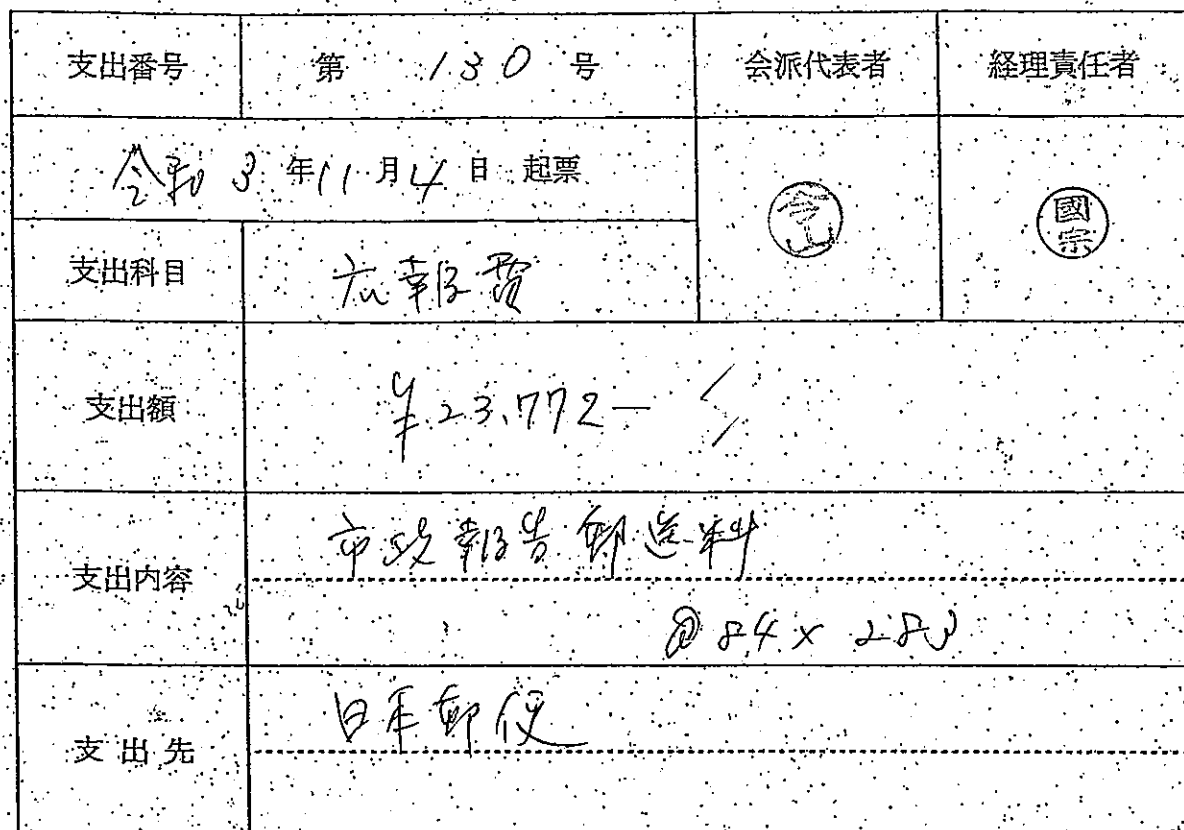 支出番号 第 130 号 会派代表者 経理責任者
令和 3 年 11 月 4 日 起票
今山
國宗
支出科目 広報費
支出額 ¥23,772-
支出内容 市政報告郵送料
@84×283
支出先 日本郵便